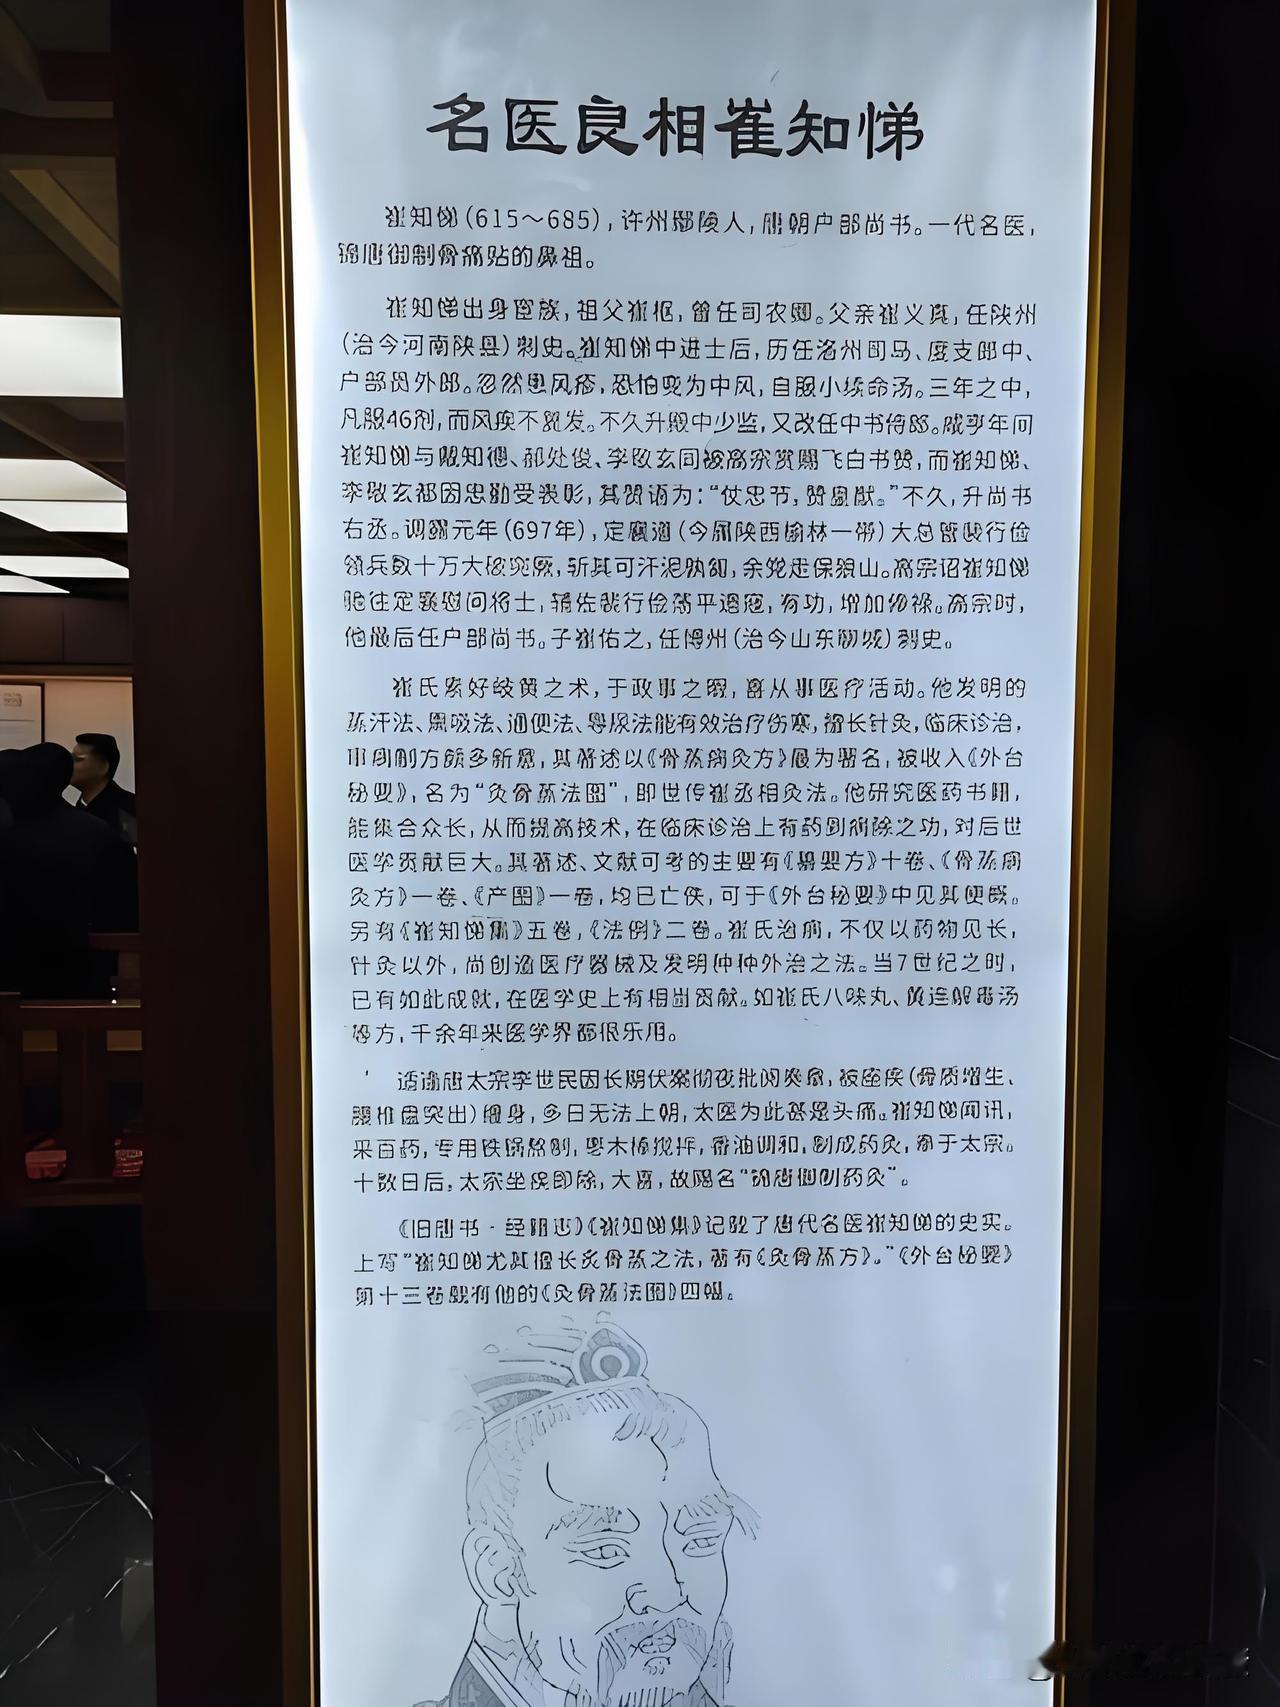 名医良相崔知悌
崔知悌(615～685),许州鄢陵人,唐朝户部尚书。一代名医,
御制骨痛贴的鼻祖。
崔知悌出身官族,祖父崔枢,曾任司农卿。父亲崔义真,任陕州
(治今河南陕县)刺史。崔知悌中进士后,历任洛州司马、度支郎中、
户部员外郎。忽然患风疹,恐怕变为中风,自服小续命汤。三年之中,
凡服46剂,而风疾不复发。不久升殿中少监,又改任中书侍郎。咸亨年间
崔知悌与戴知德、郝处俊、李敬玄同被高宗赏赐飞白书赞,而崔知悌、
李敬玄都因忠勤受表彰,其赞语为:“仗忠节,赞皇猷。”不久,升尚书
右丞。调露元年(697年),定襄道(今属陕西榆林一带)大总管裴行俭
领兵数十万大破突厥,斩其可汗泥熟匐,余党走保狼山。高宗诏崔知悌
驰往定襄慰问将士,辅佐裴行俭荡平遗寇,有功,增加俸禄。高宗时,
他最后任户部尚书。子崔佑之,任博州(治今山东聊城)刺史。
崔氏素好岐黄之术,于政事之暇,喜从事医疗活动。他发明的
蒸汗法、熏吸法、通便法、导尿法能有效治疗伤寒,擅长针灸,临床诊治,
制方颇多新意,其著述以《骨蒸病灸方》最为著名,被收入《外台
秘要》,名为“灸骨蒸法图”,即世传崔丞相灸法。他研究医药书籍,
能集合众长,从而提高技术,在临床诊治上有药到病除之功,对后世
医学贡献巨大。其著述、文献可考的主要有《纂要方》十卷、《骨蒸病
灸方》一卷、《产图》一卷,均已亡佚,可于《外台秘要》中见其梗概。
另有《崔知悌集》五卷,《法例》二卷。崔氏治病,不仅以药物见长,
针灸以外,尚创造医疗器械及发明种种外治之法。当7世纪之时,
已有如此成就,在医学史上有相当贡献。如崔氏八味丸、黄连解毒汤
等方,千余年来医学界都很乐用。
适逢唐太宗李世民因长期伏案彻夜批阅奏章,被痤疾(骨质增生、
腰椎盘突出)缠身,多日无法上朝,太医为此甚是头痛。崔知悌闻讯,
采百药,专用铁锅熬制,枣木棒搅拌,香油调和,制成药灸,献于太宗。
十数日后,太宗坐疾即除,大喜,故赐名“御制药灸”。
《旧唐书·经籍志》《崔知悌集》记载了唐代名医崔知悌的史实。
上写“崔知悌尤其擅长灸骨蒸之法,著有《灸骨蒸方》。”《外台秘要》
第十三卷载有他的《灸骨蒸法图》四幅。